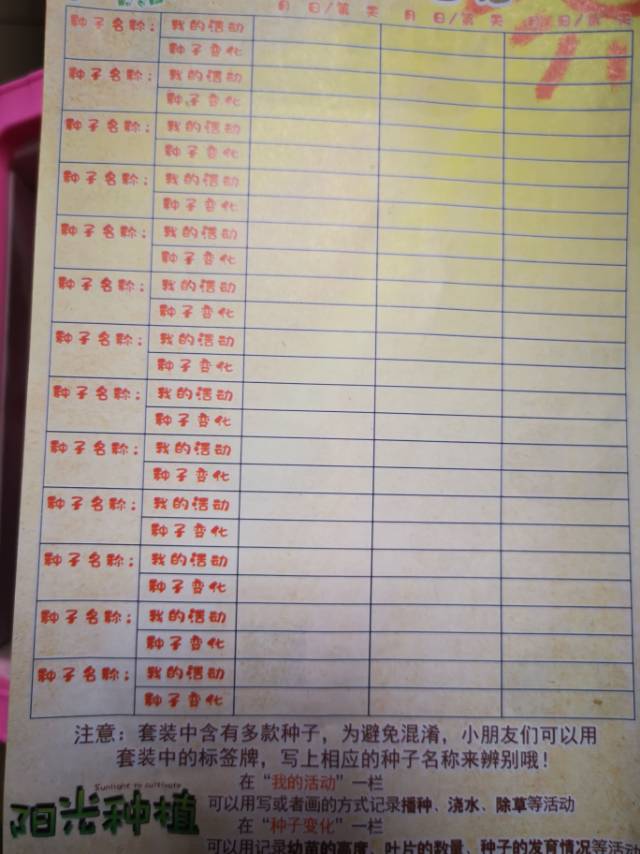 月 日/第 天 月 日/第 天 月 日/第 天
种子名称: 我的活动
种子变化
种子名称: 我的活动
种子变化
种子名称: 我的活动
种子变化
种子名称: 我的活动
种子变化
种子名称: 我的活动
种子变化
种子名称: 我的活动
种子变化
种子名称: 我的活动
种子变化
种子名称: 我的活动
种子变化
种子名称: 我的活动
种子变化
种子名称: 我的活动
种子变化
种子名称: 我的活动
种子变化
种子名称: 我的活动
种子变化
种子名称: 我的活动
种子变化
注意：套装中含有多款种子，为避免混淆，小朋友们可以用
套装中的标签牌，写上相应的种子名称来辨别哦！
Sunlight to cultivate
阳光种植
在“我的活动”一栏
可以用写或者画的方式记录播种、浇水、除草等活动
在“种子变化”一栏
可以用记录幼苗的高度、叶片的数量、种子的发育情况等活动